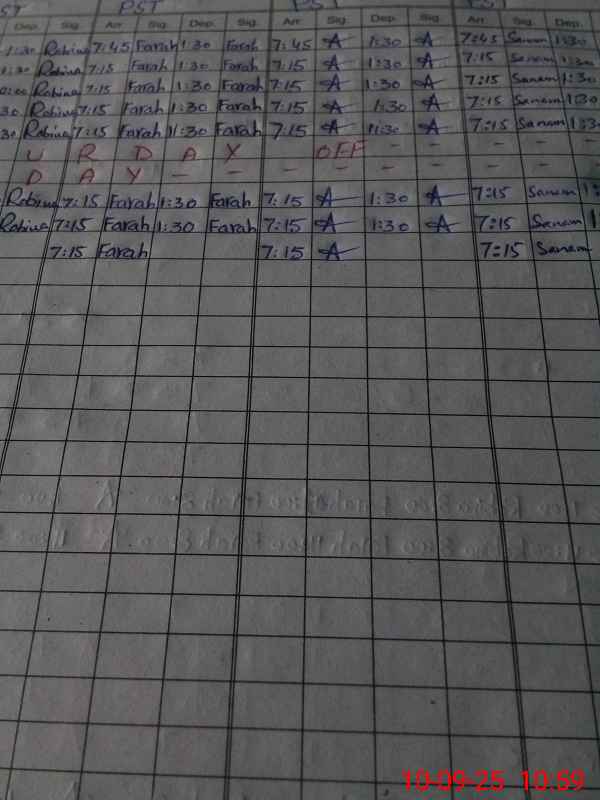 ST PST PST PST
Dep. Sig. Arr. Sig. Dep. Sig. Arr. Sig. Dep. Sig. Arr. Sig. Dep.
1:30 Robina 7:45 Farah 1:30 Farah 7:45 A 1:30 A 7:45 Sanam 1:30
1:30 Robina 7:15 Farah 1:30 Farah 7:15 A 1:30 A 7:15 Sanam 1:30
Robina 7:15 Farah 1:30 Farah 7:15 A 1:30 A 7:15 Sanam 1:30
30 Robina 7:15 Farah 1:30 Farah 7:15 A 1:30 A 7:15 Sanam 1:30
30 Robina 7:15 Farah 11:30 Farah 7:15 A 11:30 A 7:15 Sanam 1:3
U R D A Y OFF - - - - -
D A Y - - - - - - - - -
Robina 7:15 Farah 1:30 Farah 7:15 A 1:30 A 7:15 Sanam 1:
Robina 7:15 Farah 1:30 Farah 7:15 A 1:30 A 7:15 Sanam 1
7:15 Farah 7:15 A 7:15 Sanam
10-09-25 10:59